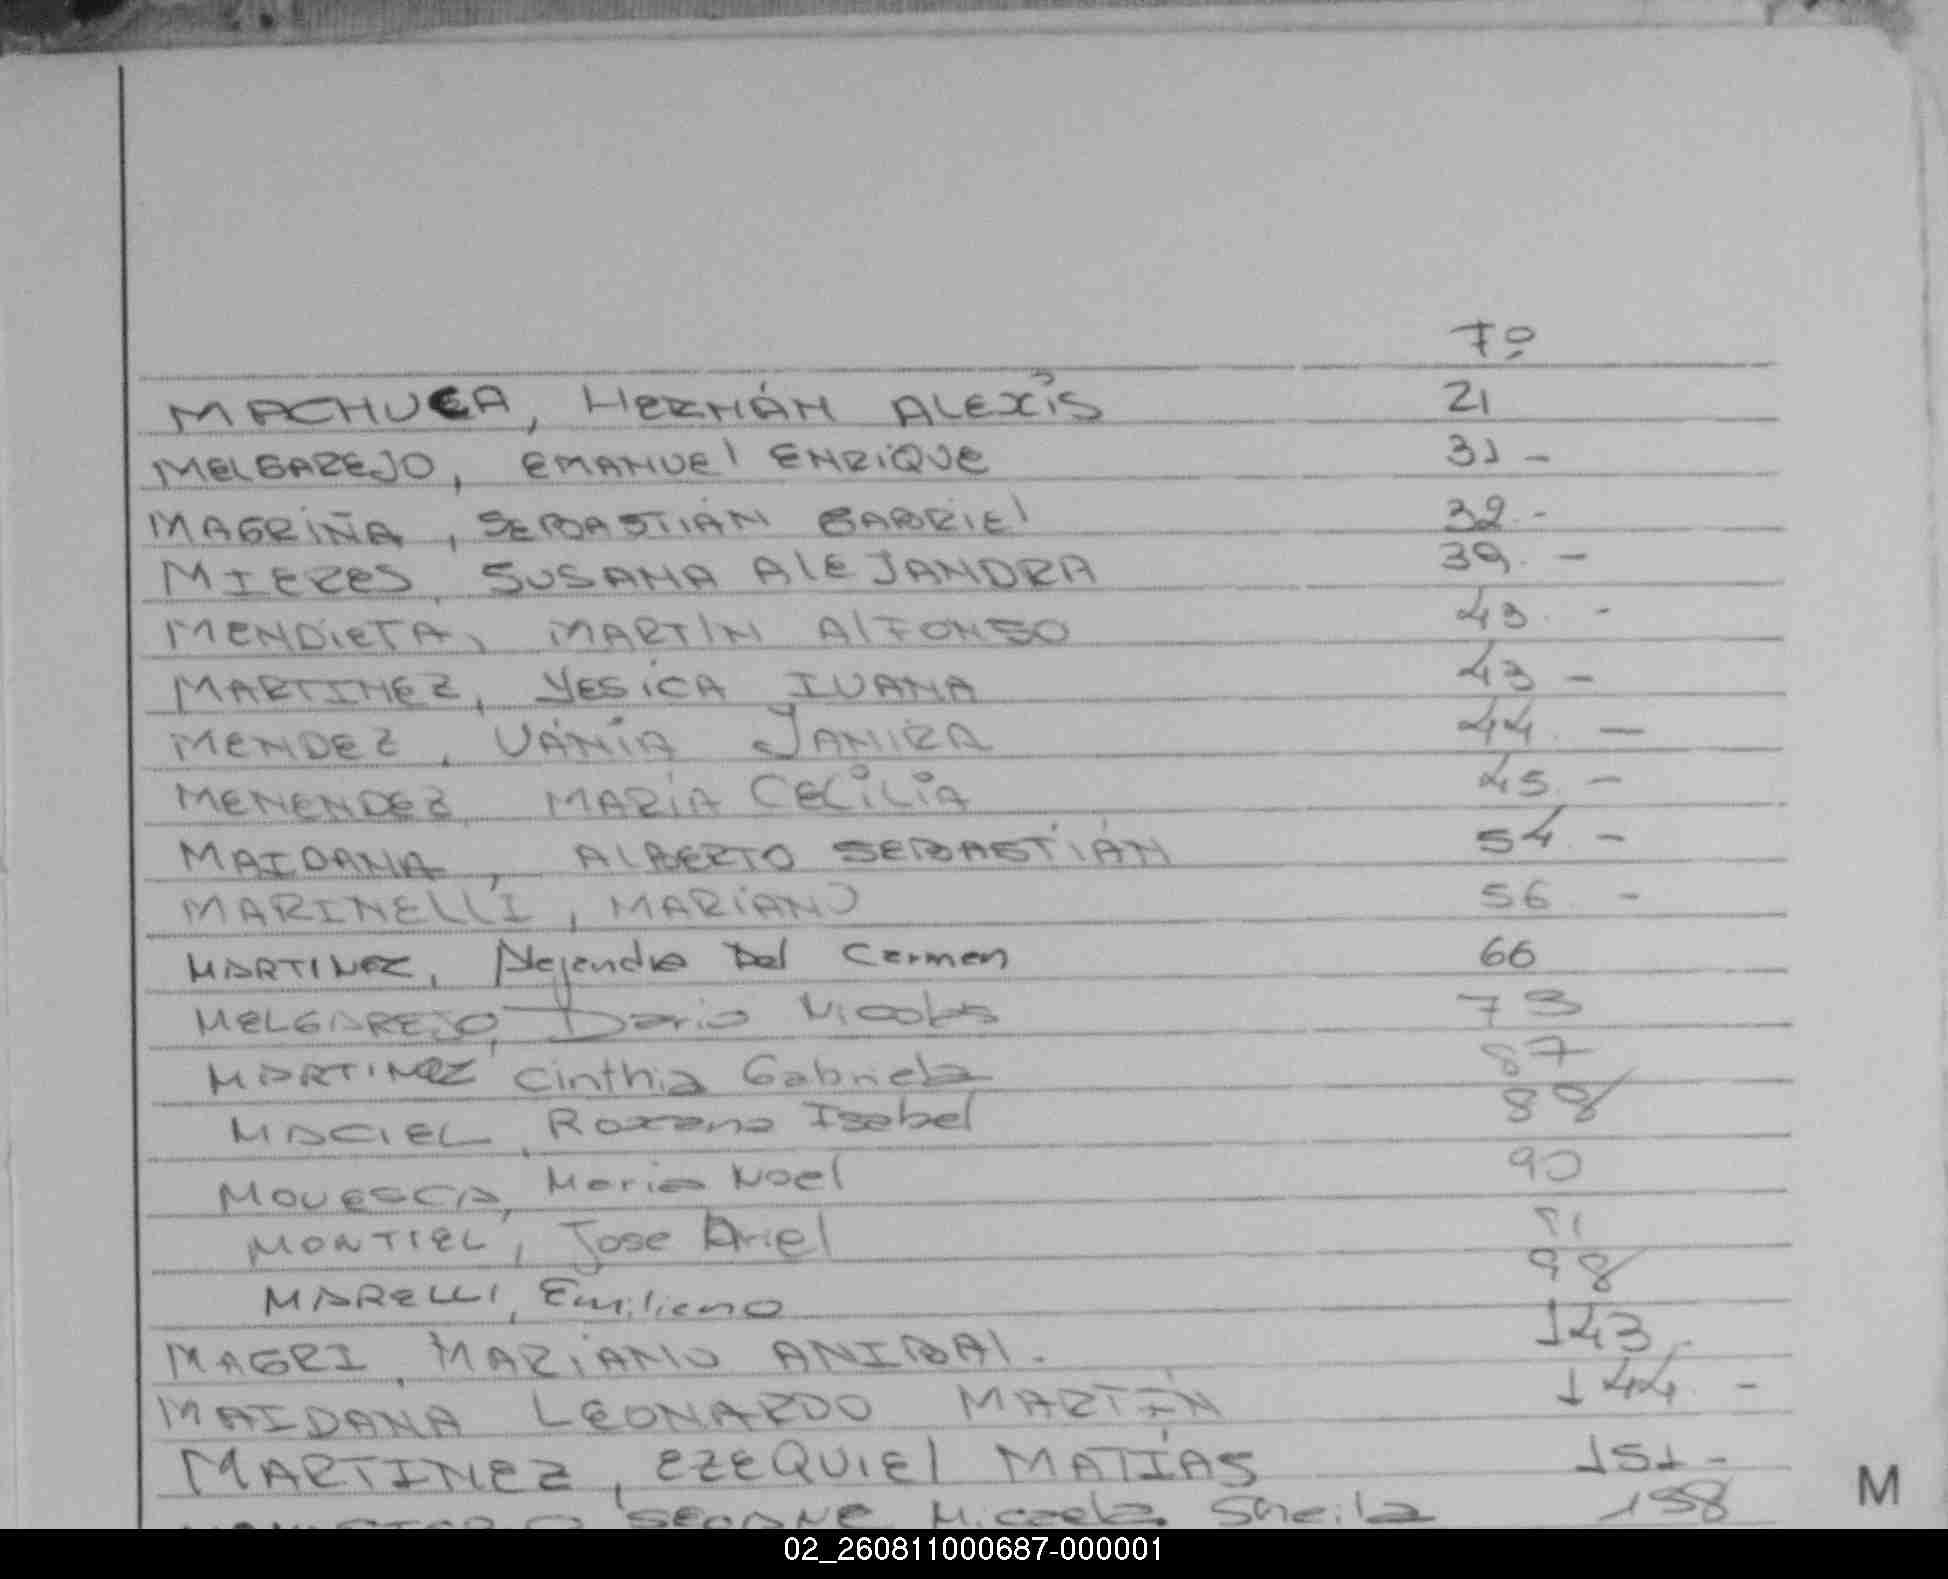 Fº
MACHUCA, HERNÁN ALEXIS 21
MELGAREJO, EMANUEl ENRIQUE 31 -
MAGRIÑA, SEBASTIÁN GABRIEl 32 -
MIERES, SUSANA AlEJANDRA 39 -
MENDIETA, MARTÍN AlFONSO 43 -
MARTINEZ, YESICA IVANA 43 -
MENDEZ, VÁNIA JANIRA 44 -
MENENDEZ, MARÍA CECILIA 45 -
MAIDANA, AlBERTO SEBASTIÁN 54 -
MARINELLI, MARIANO 56 -
MARTINEZ, Alejandra Del Carmen 66
MELGAREJO, Dario Nicolas 73
MARTINEZ Cinthia Gabriela 87
MACIEL, Roxana Isabel 88
MOUESCA, Maria Noel 90
MONTIEL, Jose Ariel 91
MARELLI, Emiliano 98
MAGRI, MARIANO ANIBAl. 143 -
MAIDANA LEONARDO MARTÍN 144 -
MARTINEZ, EZEQUIEl MATÍAS 151 -
SEOANE Micaela Sheila 158
M
02_260811000687-000001